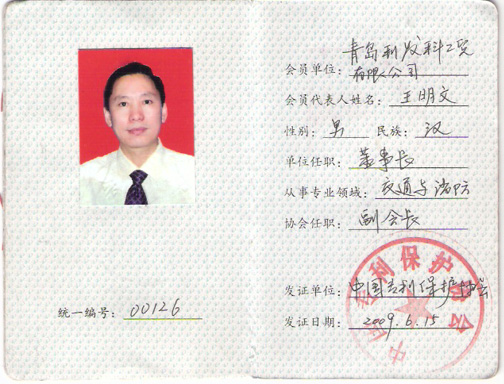 统一编号：00126
会员单位：青岛利发科工贸
有限公司
会员代表人姓名：王明文
性别：男 民族：汉
单位任职：董事长
从事专业领域：交通与消防
协会任职：副会长
发证单位：中国专利保护协会
发证日期：2009.6.15
中国专利保护协会